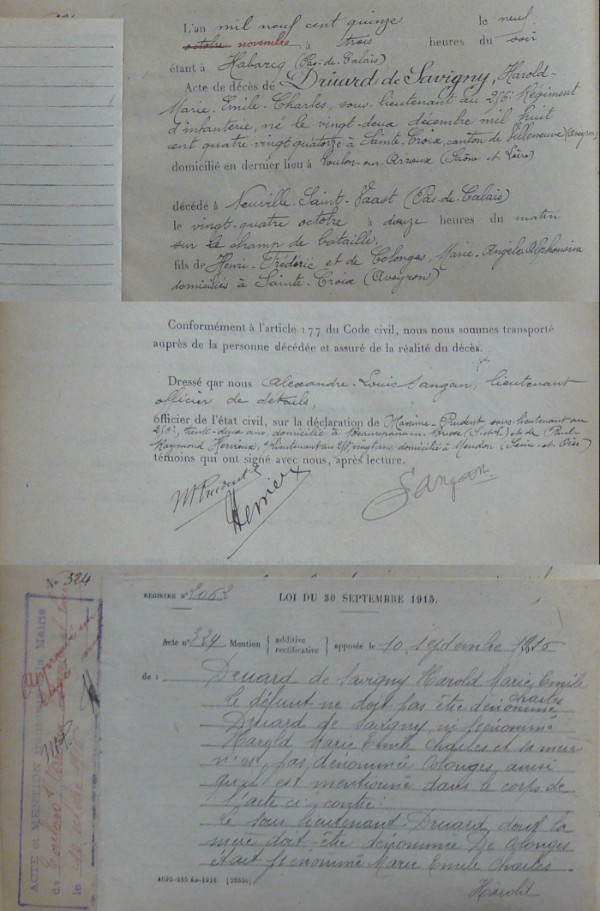 L'an mil neuf cent quinze le neuf
octobre novembre à trois heures du soir
étant à Habarcq (Pas-de-Calais)
Acte de décès de Druard de Savigny, Harold-
Marie-Emile-Charles, sous-lieutenant au 276e Régiment
d'infanterie, né le vingt-deux décembre mil huit
cent quatre-vingt-quatorze à Sainte-Croix, canton de Villeneuve (Aveyron)
domicilié en dernier lieu à Toulon-sur-Arroux (Saône et Loire)
décédé à Neuville-Saint-Vaast (Pas-de-Calais)
le vingt-quatre octobre à douze heures du matin
sur le champ de bataille.
fils de Henri-Frédéric et de Colonges, Marie-Angèle-Alphonsine
domiciliés à Sainte-Croix (Aveyron)
Conformément à l'article 177 du Code civil, nous nous sommes transporté
auprès de la personne décédée et assuré de la réalité du décès.
Dressé qar nous Alexandre-Louis Sangan, lieutenant
officier de détails,
officier de l'état civil, sur la déclaration de Maxime Prudent, sous-lieutenant au
ans, domicilié à et de Paul-
Raymond Herrieux, lieutenant au vingt ans domicilié à Meudon (Seine-et-Oise)
témoins qui ont signé avec nous, après lecture.
M Prudent
Herrieux
Sangan
No 324
ACTE et MENTION
Mairie
de Toulon
le
REGISTRE No 2062 LOI DU 30 SEPTEMBRE 1915.
Acte no 324. Mention additive rectificative apposée le 10 septembre 1916
de : Druard de Savigny Harold Marie Emile
Charles
le défunt ne doit pas être dénommé
Druard de Savigny, ni prénommé
Harold Marie Emile Charles et sa mère
n'est pas dénommée Colonges, ainsi
qu'il est mentionné dans le corps de
l'acte ci-contre
Le sous lieutenant Druard, dont la
mère doit être dénommée De Colonges
était prénommé Marie Emile Charles
Harold